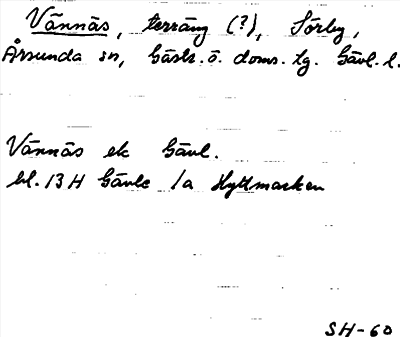 Vännäs, terräng (?), Sörby,
Årsunda sn, Gästr. ö. doms. tg. Gävl. l.
Vännäs ek Gävl.
bl. 13 H Gävle /a Hyttmarken
SH-60